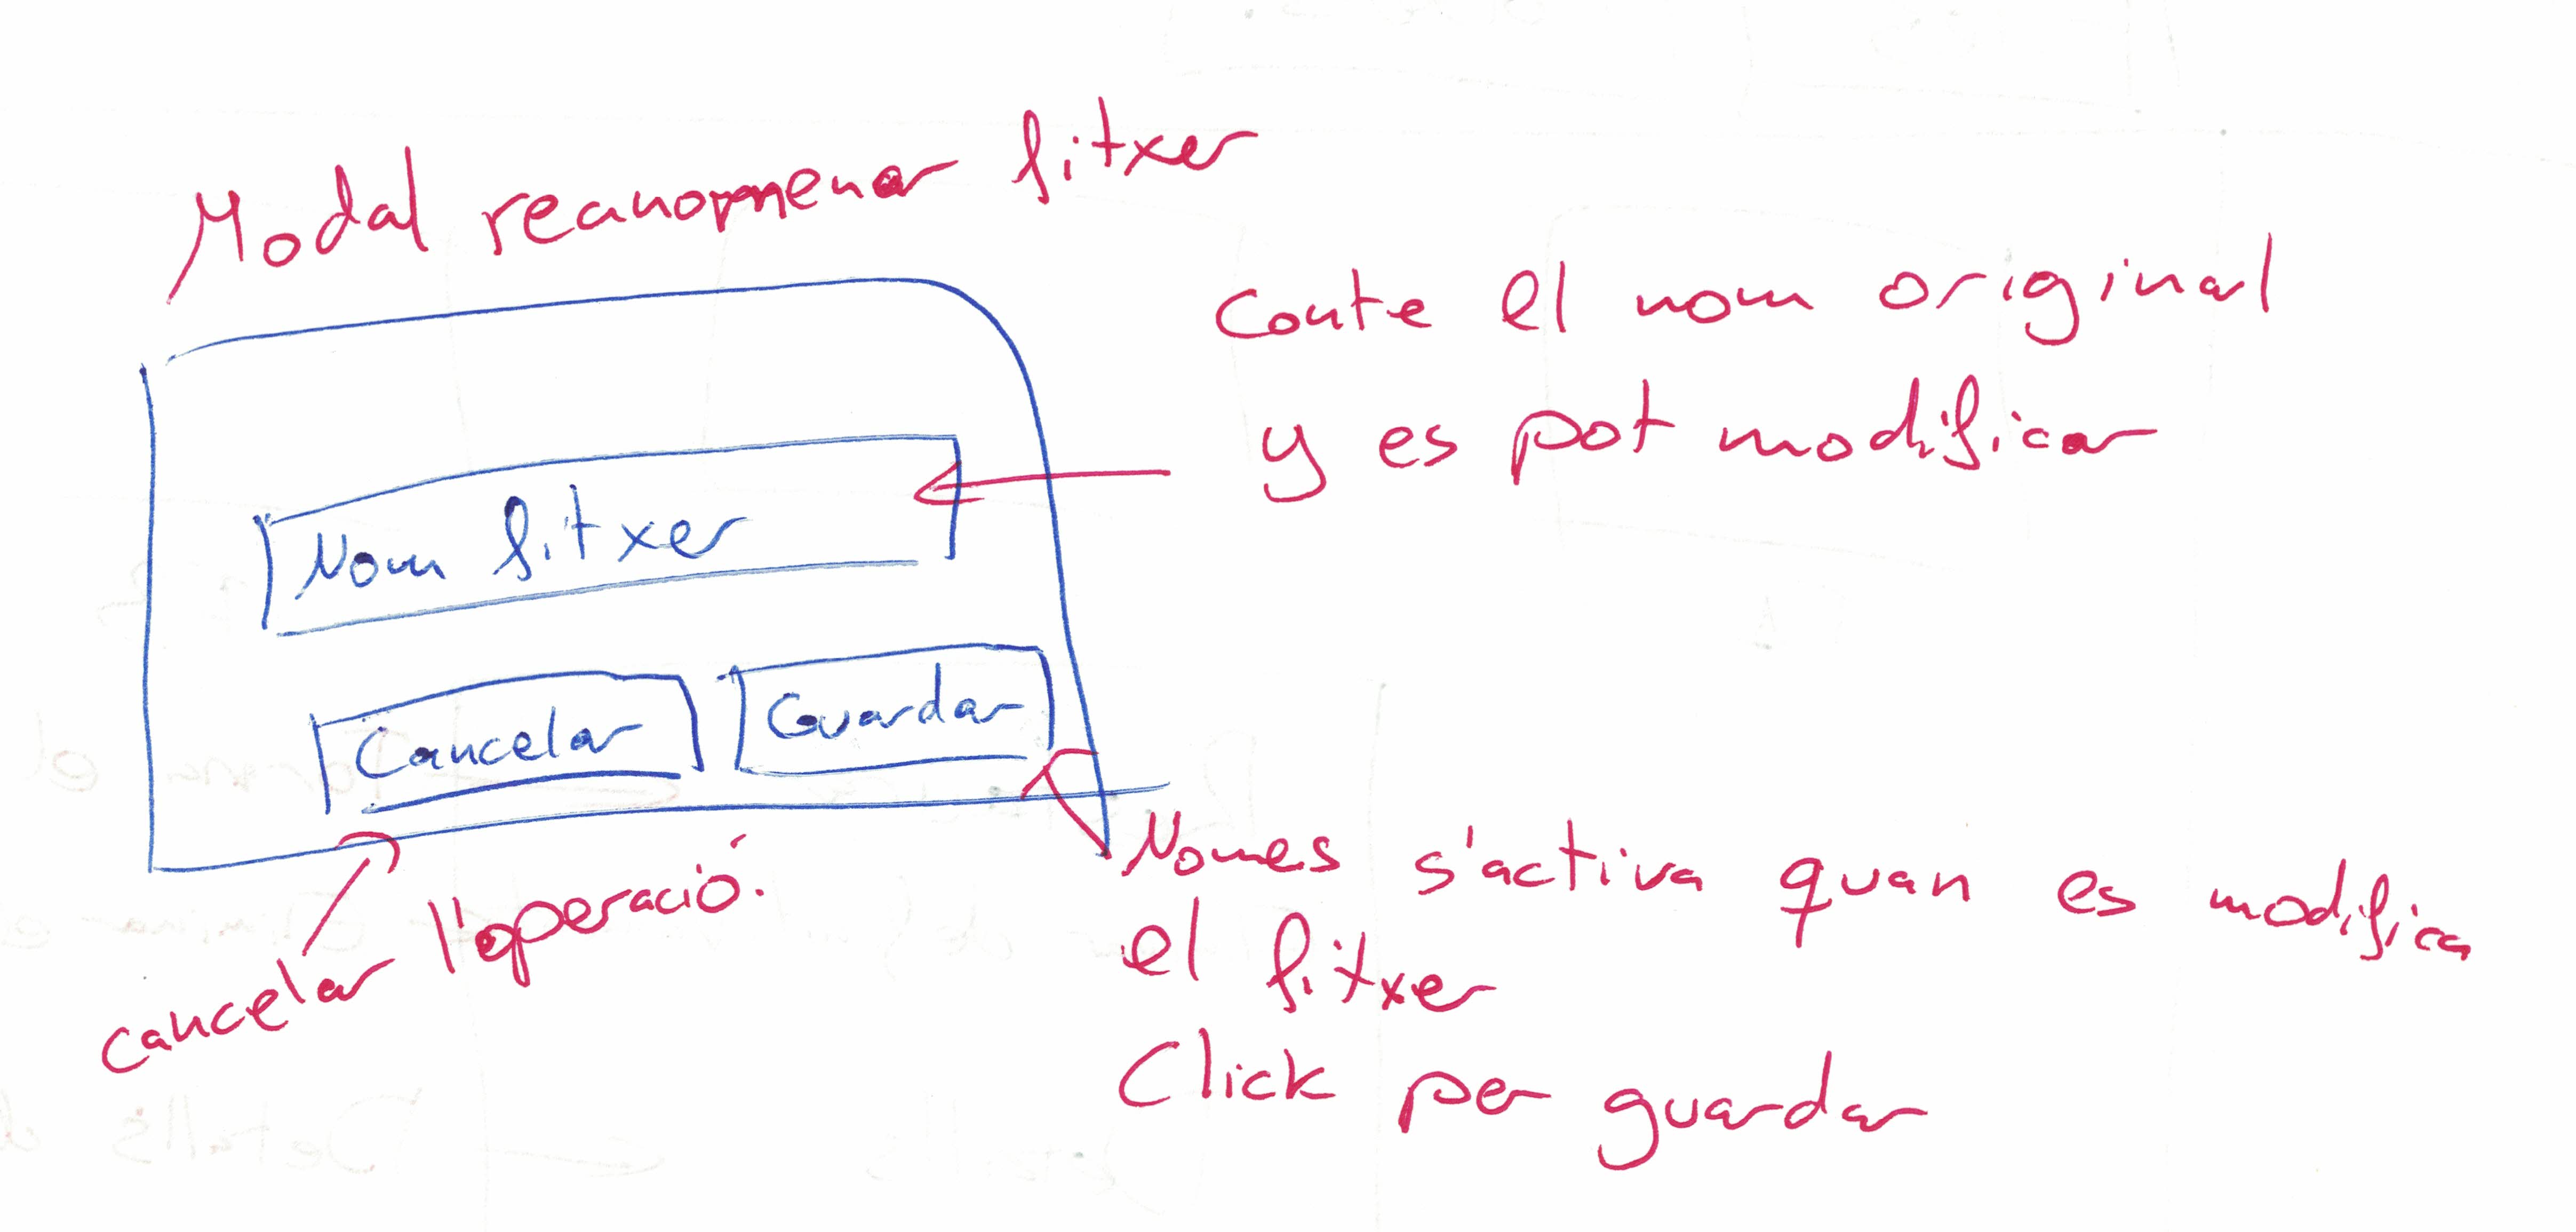 Modal reanomenar fitxer
Conte el nom original
y es pot modificar
Nom fitxer
Cancelar
Guardar
cancelar l'operació.
Nomes s'activa quan es modifica
el fitxer
Click per guardar